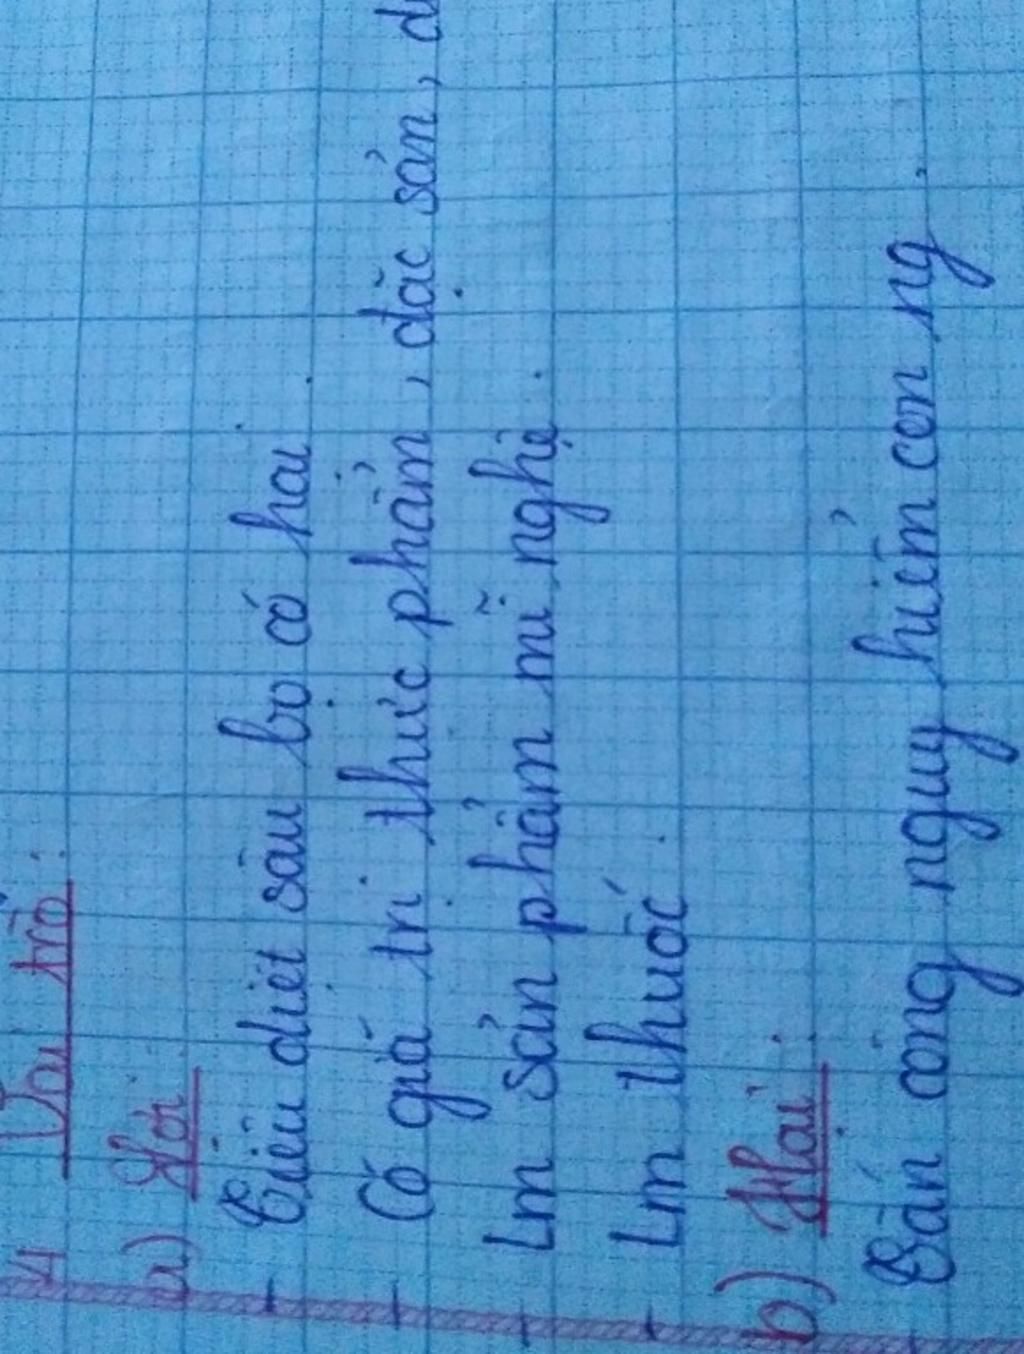 4 Vai trò:
a) Lợi:
- Tiêu diệt sâu bọ có hại.
- Có giá trị thực phẩm, đặc sản,
- Lm sản phẩm mĩ nghệ.
- Lm thuốc.
b) Hại:
- Tấn công nguy hiểm con ng.